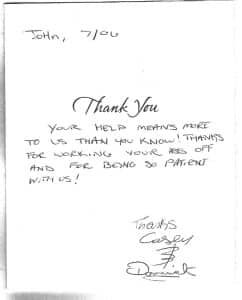 John, 7/06
Thank You
YOUR HELP MEANS MORE
TO US THAN YOU KNOW! THANKS
FOR WORKING YOUR ASS OFF
AND FOR BEING SO PATIENT
WITH US!
Thanks
Casey
&
Dominick